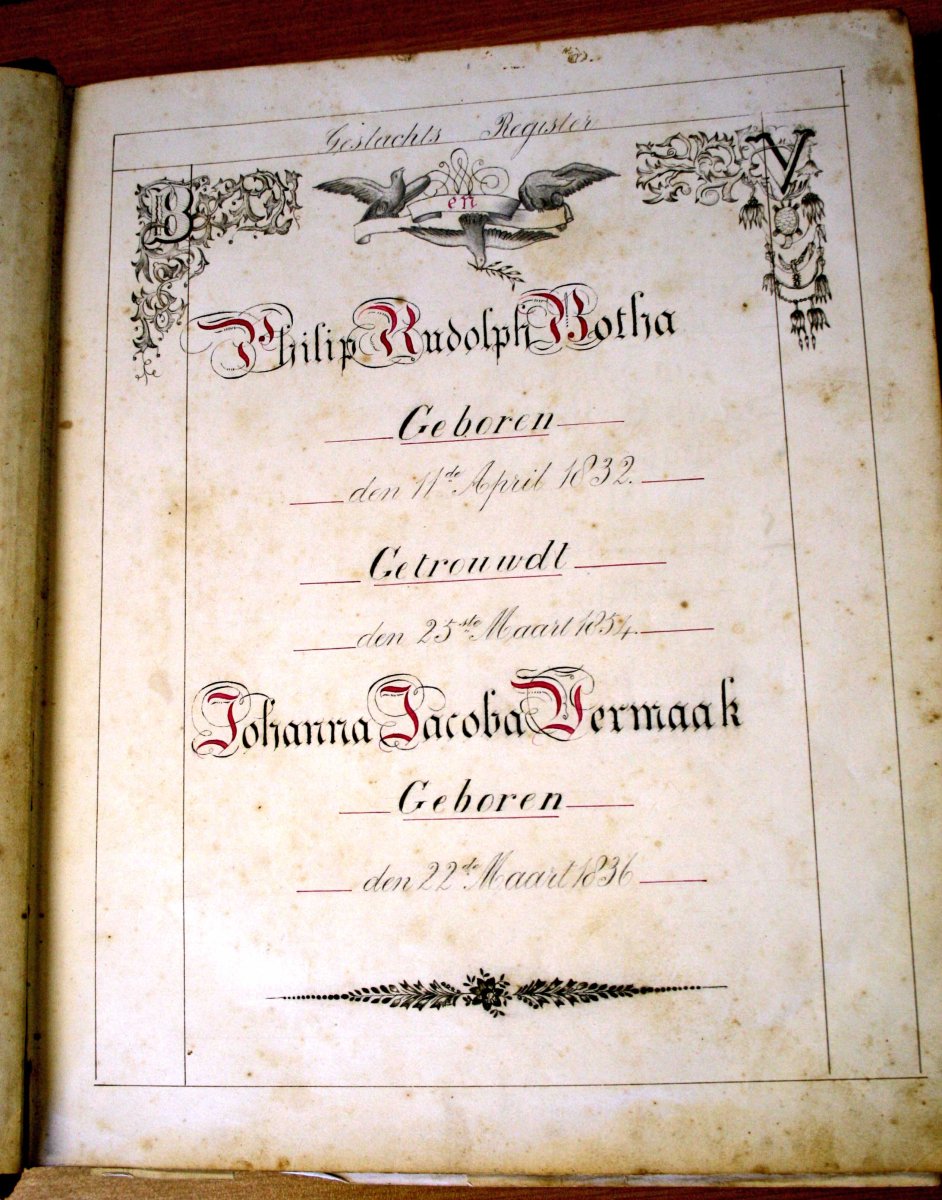 Geslachts Register
B en V
Philip Rudolph Botha
Geboren
den 11de April 1832.
Getrouwdt
den 25ste Maart 1854.
Johanna Jacoba Vermaak
Geboren
den 22de Maart 1836